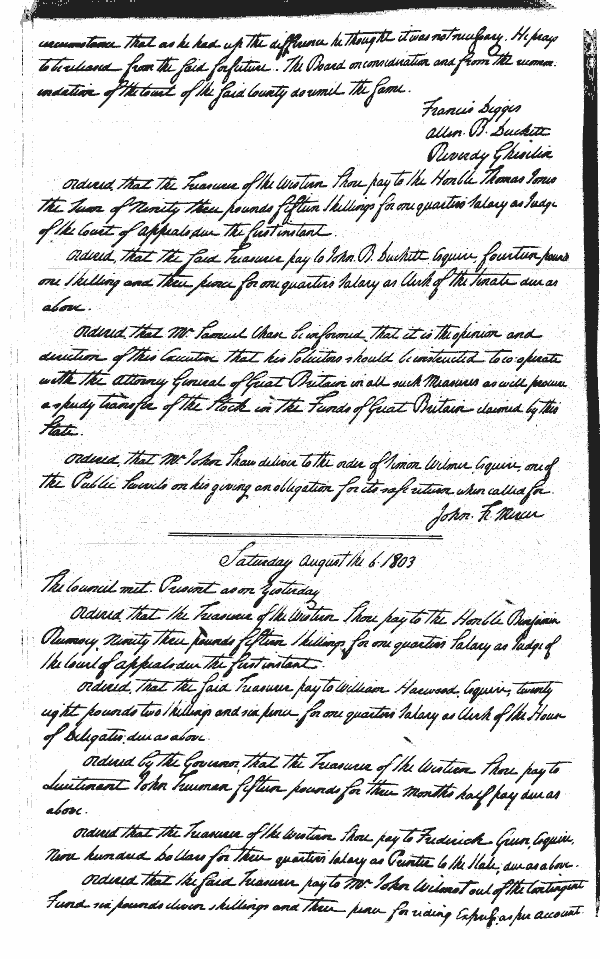 circumstance that as he had up the difference he thought it was not necessary. He prays
to be released from the said forfeiture. The Board on consideration and from the recomm
endation of the Court of the said County do remit the same.
Francis Digges
Allen B. Duckett
Reverdy Ghiselin
Ordered, that the Treasurer of the Western Shore pay to the Honble Thomas Jones
the sum of Ninety three pounds fifteen Shillings for one quarters Salary as Judge
of the Court of Appeals due the first instant.
Ordered, that the said Treasurer pay to John B. Duckett, Esquire, fourteen pounds
one Shilling and three pence for one quarters Salary as Clerk of the Senate due as
above.
Ordered, that Mr. Samuel Chase be informed, that it is the opinion and
direction of this Executive that his Solicitors should be instructed to co-operate
with the Attorney General of Great Britain in all such Measures as will procure
a speedy transfer of the Stock in the Funds of Great Britain claimed by this
State.
Ordered, that Mr. John Shaw deliver to the order of Simon Wilmer, Esquire, one of
the Public Swivels on his giving an obligation for its safe return when called for
John. F. Mercer
Saturday August the 6. 1803
The Council met. Present as on Yesterday
Ordered, that the Treasurer of the Western Shore pay to the Honble Benjamin
Rumsey, Ninety three pounds fifteen Shillings for one quarters Salary as Judge of
the Court of appeals due the first instant.
Ordered, that the said Treasurer pay to William Harwood, Esquire, twenty
eight pounds two Shillings and six pence for one quarters Salary as Clerk of the House
of Delegates due as above.
Ordered by the Governor, that the Treasurer of the Western Shore pay to
Lieutenant John Trueman fifteen pounds for three months half pay due as
above.
Ordered that the Treasurer of the Western Shore pay to Frederick Green, Esquire,
Nine hundred Dollars for three quarters Salary as Printer to the State, due as above.
Ordered that the said Treasurer pay to Mr. John Wilmot out of the Contingent
Fund six pounds eleven shillings and three pence for riding Express as per account